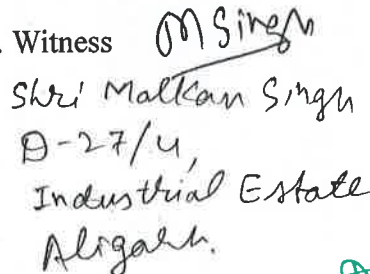 . Witness M Singh
Shri Malkan Singh
D-27/4,
Industrial Estate
Aligarh.